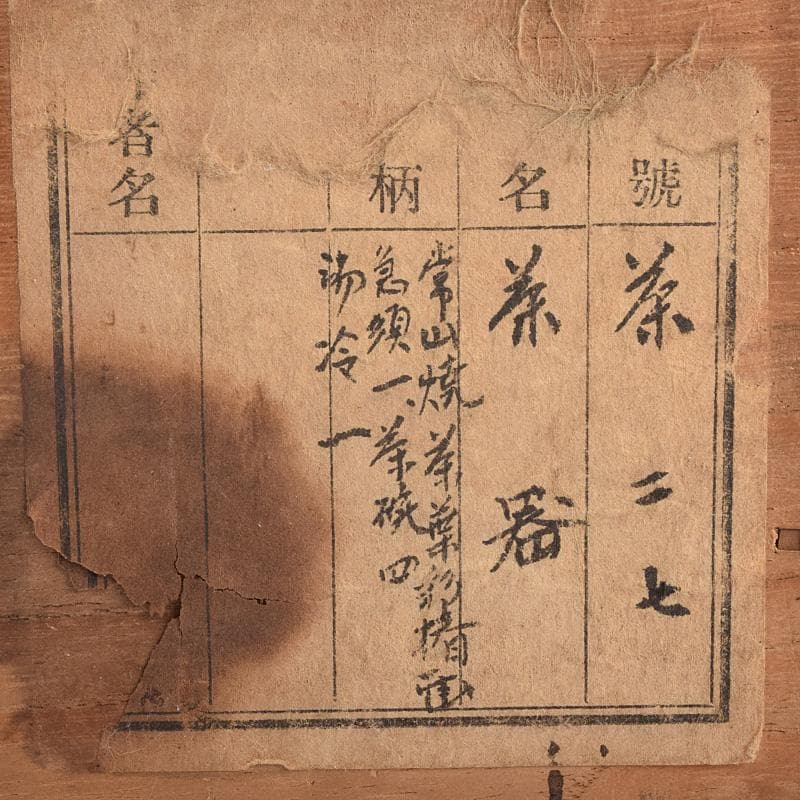 號
茶 二七
名
茶器
柄
常山焼 茶葉形揩画
急須一、茶碗四
湯冷一
者名